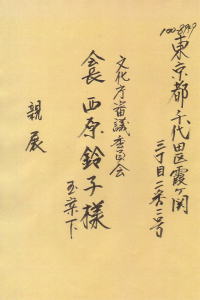 100-8959
東京都千代田区霞ヶ関
三丁目二番二号
文化庁審議委員会
会長 西原鈴子様
玉案下
親展